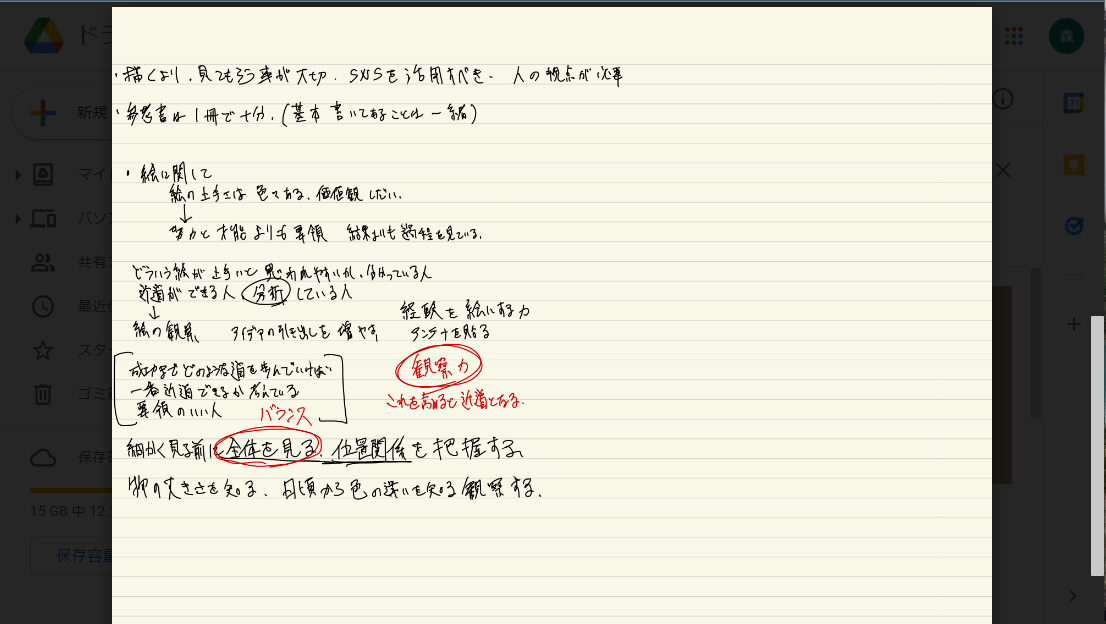 ドラ
森
新規
マイド
パソコ
共有
最近
スター
ゴミ箱
保存容
15 GB 中 12.
保存容量
・描くより、見てもらう事が大切。SNSを活用すべき。人の視点が必要
・参考書は1冊で十分。(基本書いてあることは一緒)
・絵に関して
絵の上手さは色々ある。価値観しだい。
↓
努力と才能よりも要領 結果よりも過程を見ている。
どういう絵が上手いと思われやすいか、分かっている人
近道ができる人、分析している人
↓
経験を絵にする力
絵の観察 アイデアの引き出しを増やす アンテナを貼る
成功までどのような道を歩んでいけば
一番近道できるか考えている
要領のいい人
バランス
観察力
これを高めると近道となる。
細かく見る前に全体を見る、位置関係を把握する
形の大きさを知る。日頃から色の違いを知る観察する。